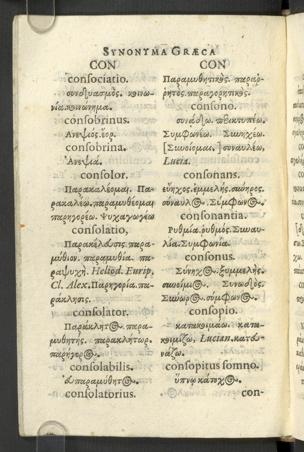 SYNONYMA GRÆCA
CON
consociatio.
συνδυασμός. κοινω-
νία. κοινώνημα.
consobrinus.
Ἀνεψιός.
consobrina.
Ἀνεψιά.
consolor.
Παρακαλέομαι. Πα-
ρακαλέω. παραμυθέομαι
παρηγορέω. ψυχαγωγέω
consolatio,
Παρακέλευσις. παρα-
μύθιον. παραμυθία. πα-
ραψυχή. Heliod. Eurip.
Cl. Alex. Παρηγορία. πα-
ράκλησις.
consolator.
Παράκλητος. παρα-
μυθητής. παρακλήτωρ.
παρήγορος.
consolabilis.
εὐπαραμύθητος.
consolatorius.
CON
Παραμυθητικός. παρορ-
παρηγορητικός.
consono.
συνᾴδω.
Συμφωνέω. Συνηχέω.
συναυλέω.
Lucia.
consonans.
εὔηχος. ἐμμελής.
σύναυλος. Σύμφωνος.
consonantia.
Ῥυθμία. ῥυθμός. Συναυ-
λία. Συμφωνία.
consonus.
Συνηχος. ξυμμελής.
Συνῳδός.
σύμφωνος.
consopio.
κατακοιμάω. κατα-
κοιμίζω. Lucian. κατευ-
νάζω.
consopitus somno.
ὑπνῳ κάτοχος.
con-